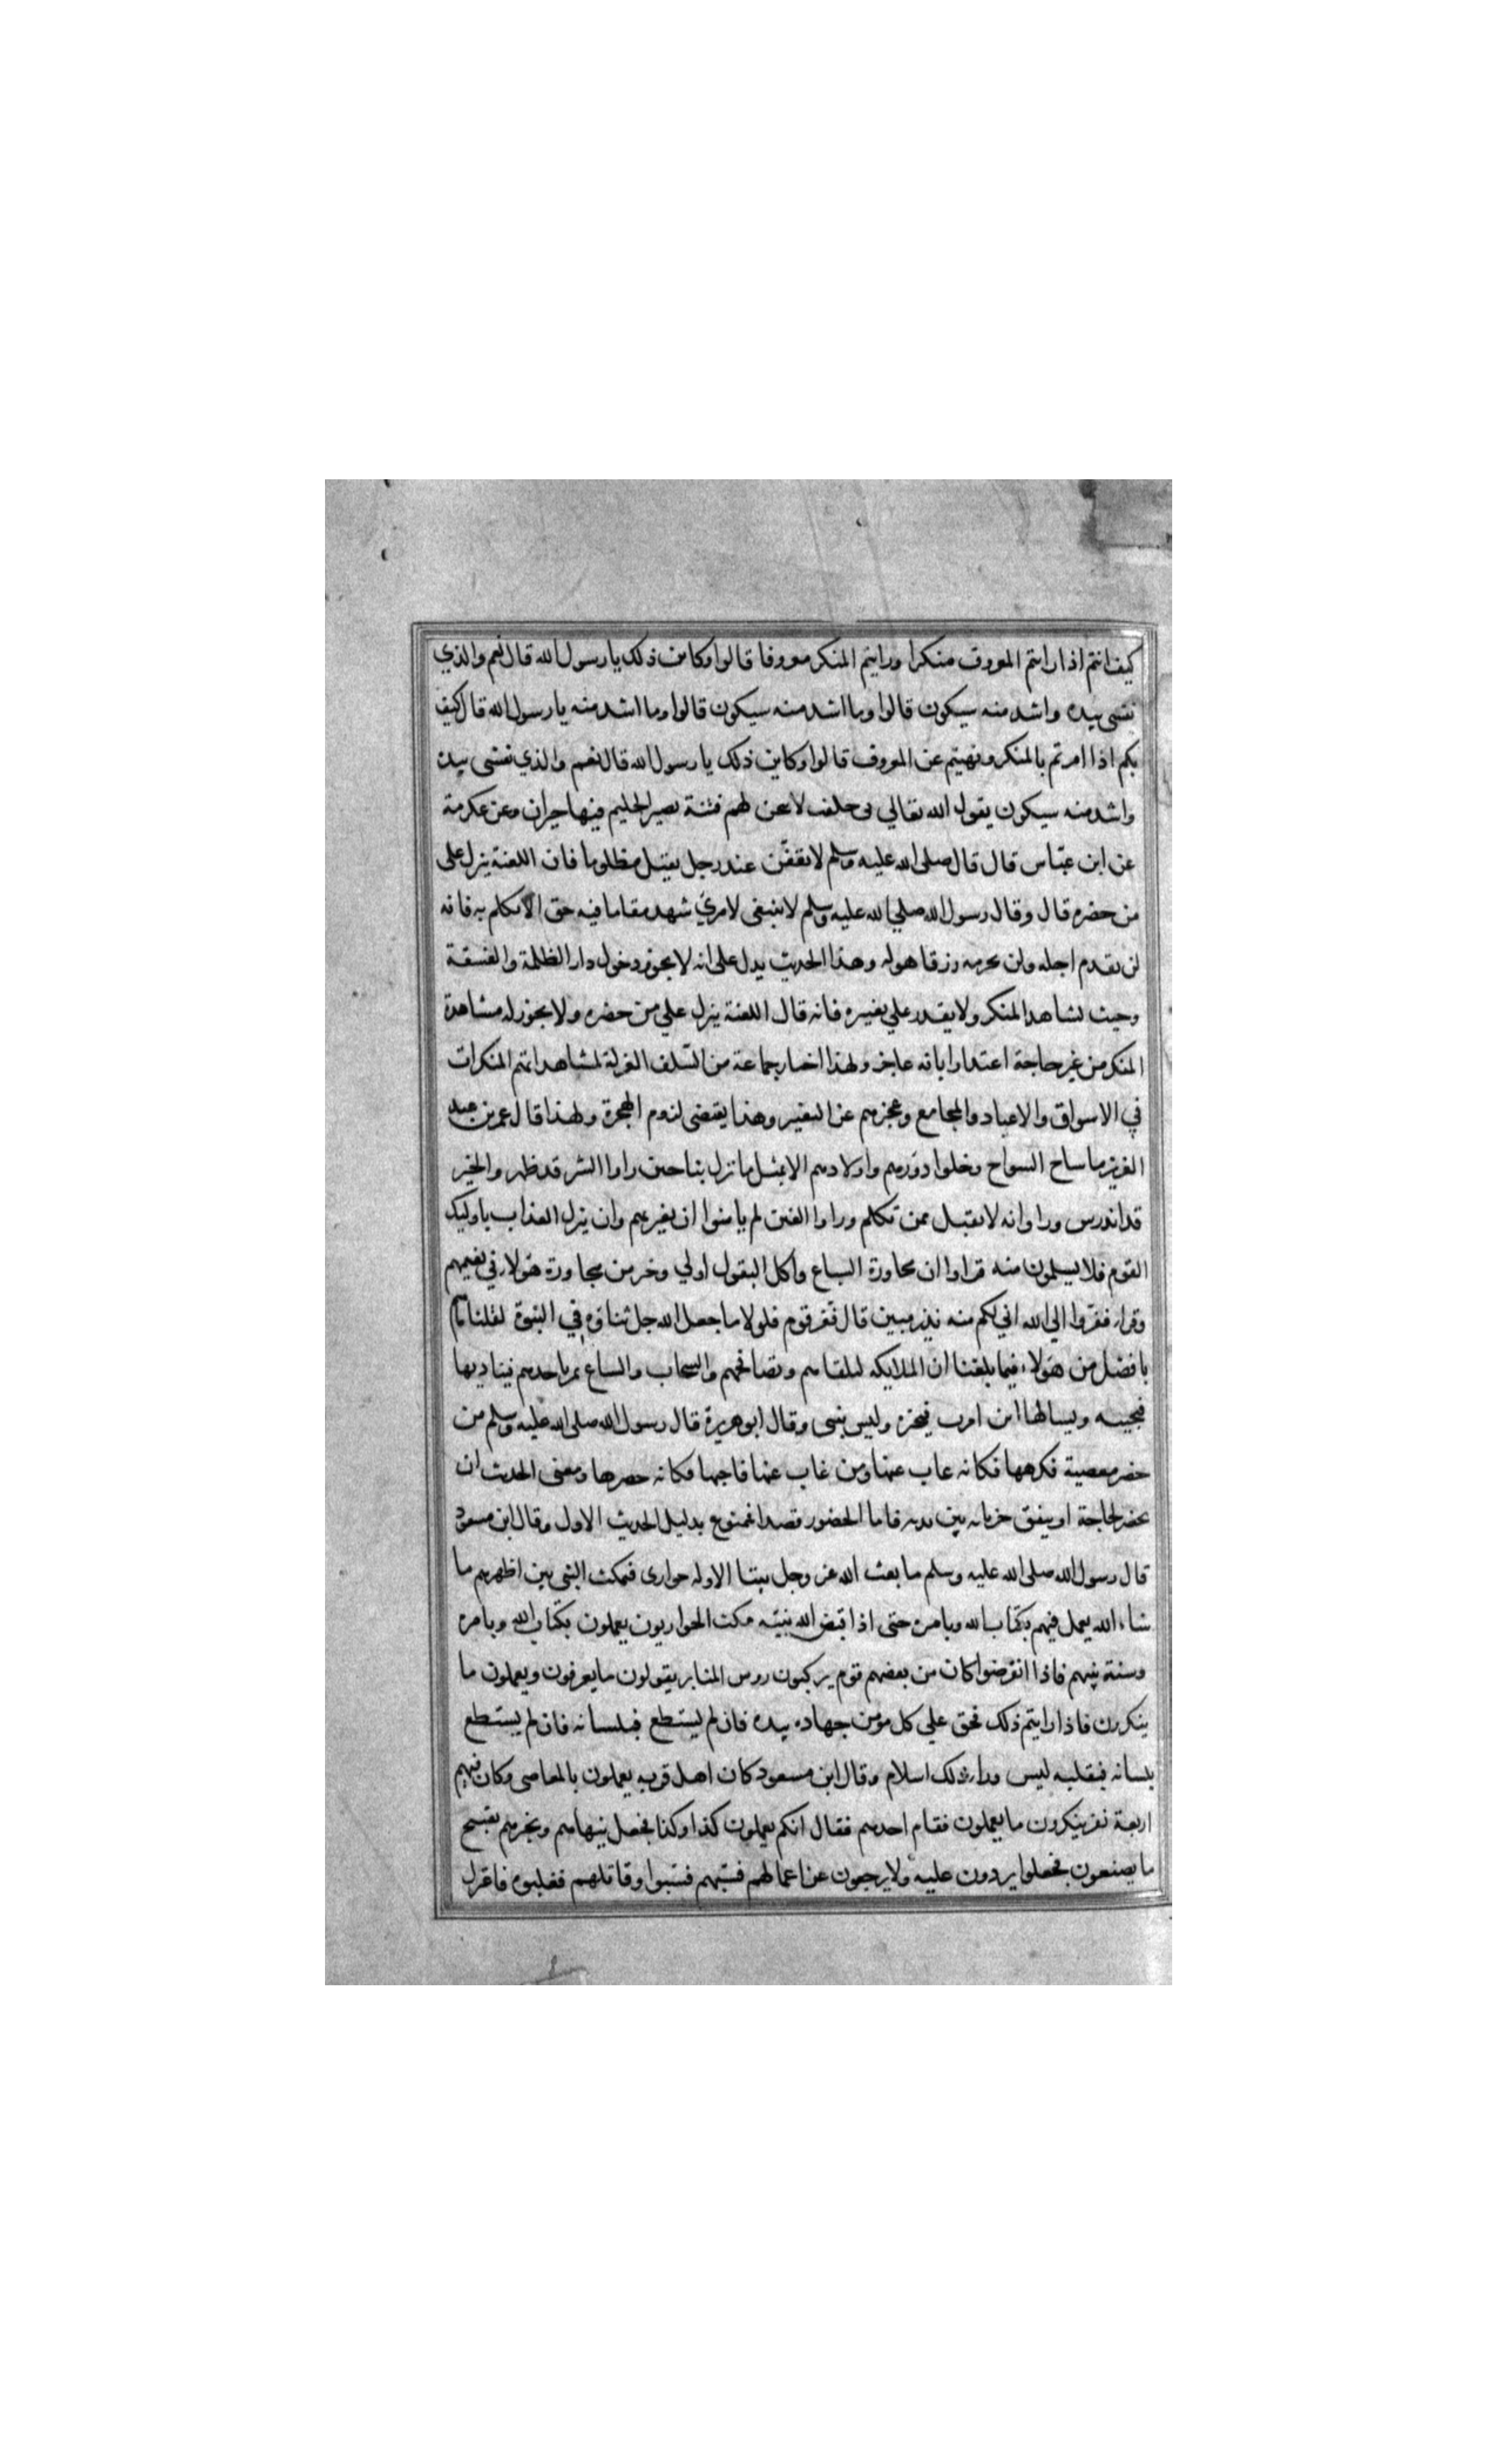 كيف انتم اذا رايتم المعروف منكرا ورايتم المنكر معروفا قالوا وكاين ذلك يا رسول الله قال نعم والذي
نفسي بيده واشد منه سيكون قالوا وما اشد منه سيكون قالوا وما اشد منه يا رسول الله قال كيف
بكم اذا امرتم بالمنكر ونهيتم عن المعروف قالوا وكاين ذلك يا رسول الله قال نعم والذي نفسي بيده
واشد منه سيكون يقول الله تعالي بي حلفت لاتيحن لهم فتنة يصير الحليم فيها حيران وعن عكرمة
عن ابن عبّاس قال قال صلى الله عليه وسلم لا تقفّن عند رجل يقتل مظلوما فان اللعنة ينزل على
من حضره قال وقال رسول الله صلي الله عليه وسلم لا ينبغي لامرئ شهد مقاما فيه حق الا تكلم به فانه
لن يقدم اجله ولن يحرمه رزقا هو له وهذا الحديث يدل على انه لا يجوز دخول دار الظلمة والفسقة
وحيث يشاهد المنكر ولا يقدر علي تغييره فانه قال اللعنة ينزل علي من حضره ولا يجوز له مشاهدة
المنكر من غير حاجة اعتذارا بانه عاجز ولهذا اختار جماعة من السّلف العزلة لمشاهداتهم المنكرات
في الاسواق والاعياد والمجامع وعجزهم عن التغيير وهذا يقتضي لزوم الهجرة ولهذا قال عمر بن عبد
العزيز ما ساح السواح وخلوا دورهم واولادهم الا بمثل ما نزل بنا حين راوا الشر قد ظهر والخير
قد اندرس وراوا انه لا يقبل ممن تكلم وراوا الفتن لم يامنوا ان تعتريهم وان ينزل العذاب باوليك
القوم فلا يسلمون منه فراوا ان مجاورة السباع واكل البقول اولي وخير من مجاورة هولاء في نعيمهم
وقرا، ففروا الي الله اني لكم منه نذير مبين قال ففر قوم فلولا ما جعل الله جل ثناؤه في النبوة لقلنا ما هم
بافضل من هولاء، فيما بلغنا ان الملايكه لتلقاهم وتصافحهم والسحاب والسباع يمر باحدهم فيناديها
فيجيبه ويسالها اين امرت فيخبره وليس بنبي وقال ابو هريرة قال رسول الله صلى الله عليه وسلم من
حضر معصية فكرهها فكانه غاب عنها ومن غاب عنها فاحبها فكانه حضرها ومعنى الحديث ان
يحضر لحاجة او يتفق جريانه بين يديه فاما الحضور قصدا فممنوع بدليل الحديث الاول وقال ابن مسعود
قال رسول الله صلى الله عليه وسلم ما بعث الله عز وجل نبيّا الا وله حواري فيمكث النبي بين اظهرهم ما
شاء الله يعمل فيهم بكتاب الله وبامره حتى اذا قبض الله نبيّه مكث الحواريون يعملون بكتاب الله وبامره
وسنة نبيهم فاذا انقرضوا كان من بعضهم قوم يركبون روس المنابر يقولون ما يعرفون ويعملون ما
ينكرون فاذا رايتم ذلك فحق علي كل مؤمن جهاده بيده فان لم يستطع فبلسانه فان لم يستطع
بلسانه فبقلبه ليس وراء ذلك اسلام وقال ابن مسعود كان اهل قريه يعملون بالمعاصي وكان فيهم
اربعة نفر ينكرون ما يعملون فقام احدهم فقال انكم يعملون كذا وكذا فجعل ينهاهم ويخبرهم بقبيح
ما يصنعون فجعلوا يردون عليه ولا يرجعون عن اعمالهم فسبّهم فسبّوا وقاتلهم فغلبوه فاعتزل